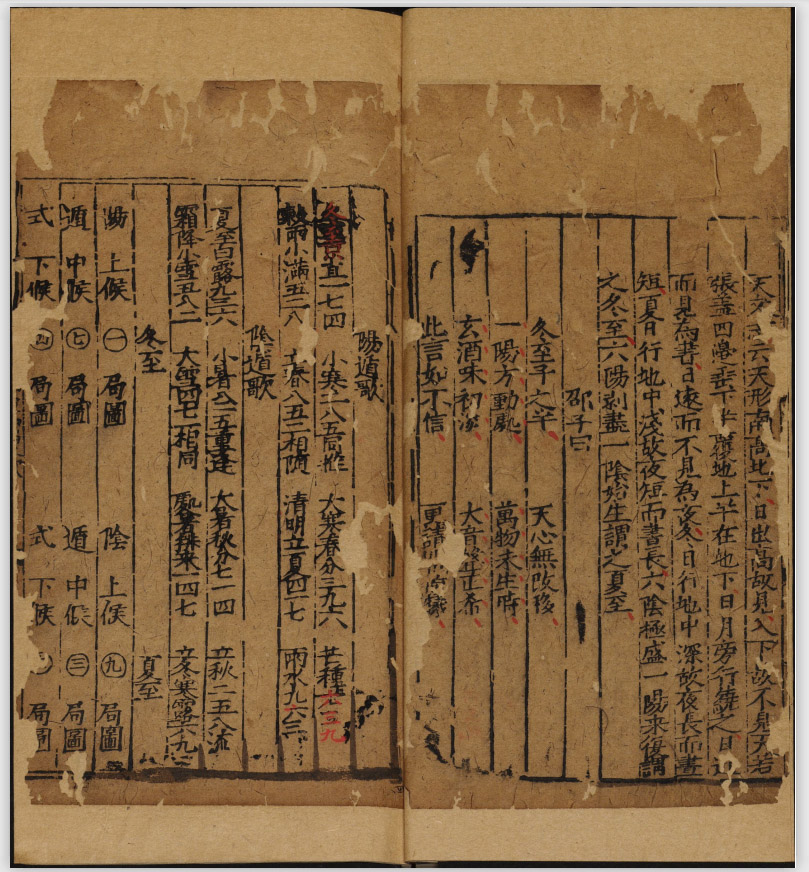 天文云天形南高北下日出高故見入下故不見天若
張蓋四邊垂下半覆地上半在地下日月旁行繞之日近
而見為晝日遠而不見為夜冬日行地中深故夜長而晝
短夏日行地中淺故夜短而晝長六陰極盛一陽來復謂
之冬至六陽剥盡一陰始生謂之夏至
邵子曰
冬至子之半 天心無改移
一陽方動處 萬物未生時
玄酒味初淡 大音聲正希
此言如不信 更請問犧
陽遁歌
冬直一七四 小寒二八五同推 大寒春分三九六 芒種六三九
穀雨小滿五二八 立春八五二相隨 清明立夏四一七 雨水九六三
陰遁歌
夏至白露九三六 小暑八二五重逢 大暑秋分七一四 立秋二五八流
霜降小雪五八二 大雪四七一相同 處暑排來一四七 立冬寒露六九
冬至 夏至
陽 上候 一 局圖 陰 上候 九 局圖
遁 中候 七 局圖 遁 中候 三 局圖
式 下候 四 局圖 式 下候 局圖